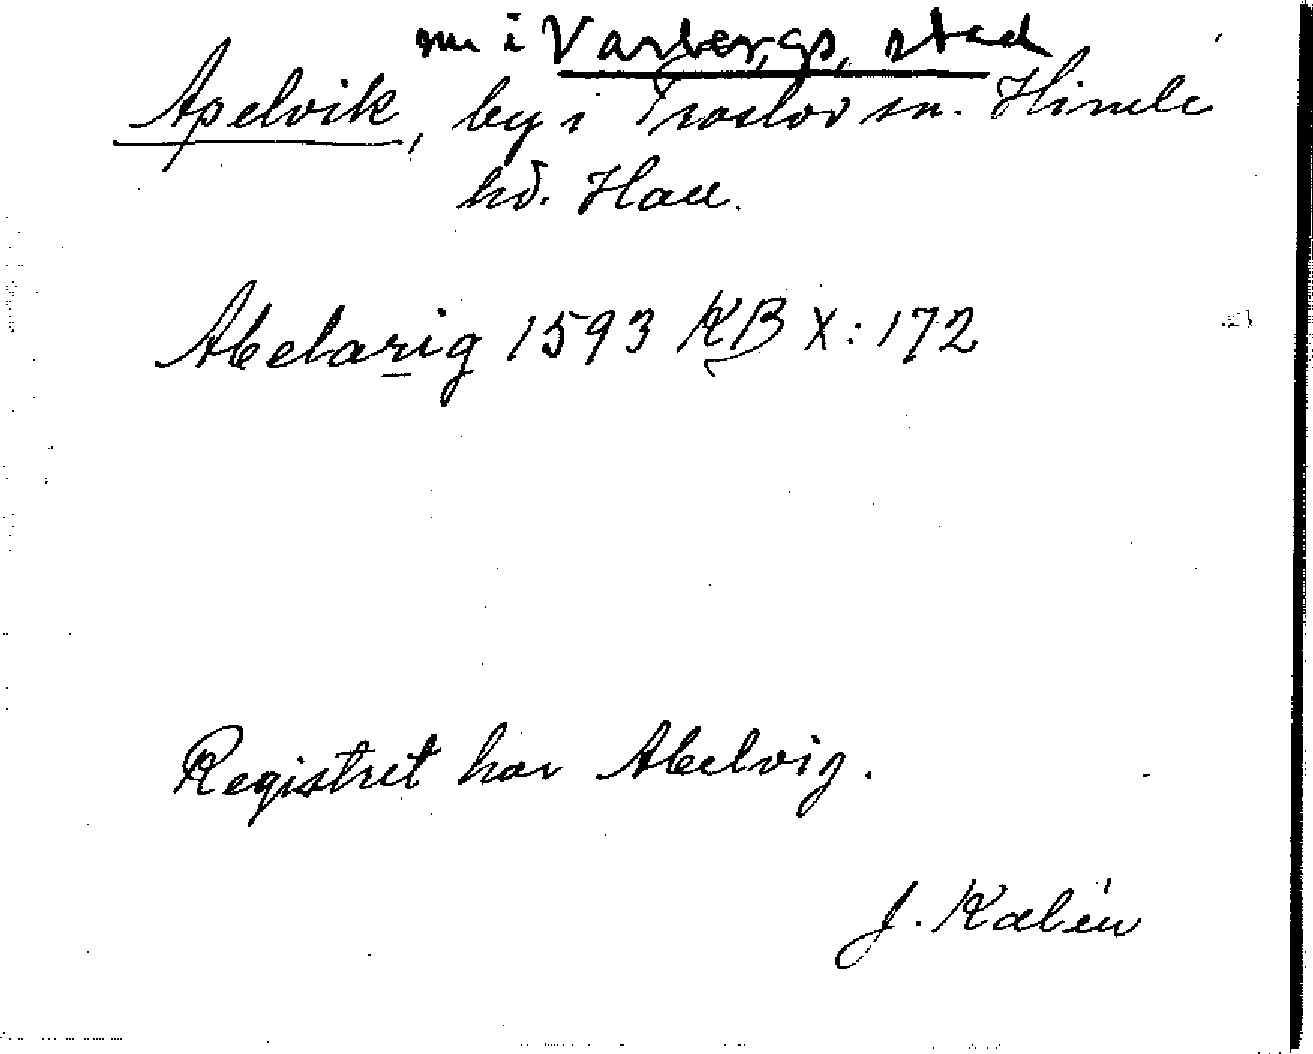 nu i Varbergs stad
Apelvik, by i Träslöv sn. Himle
hd. Hall.
Abelarig 1593 KB X:172
Registret har Abelvig.
J. Kalén